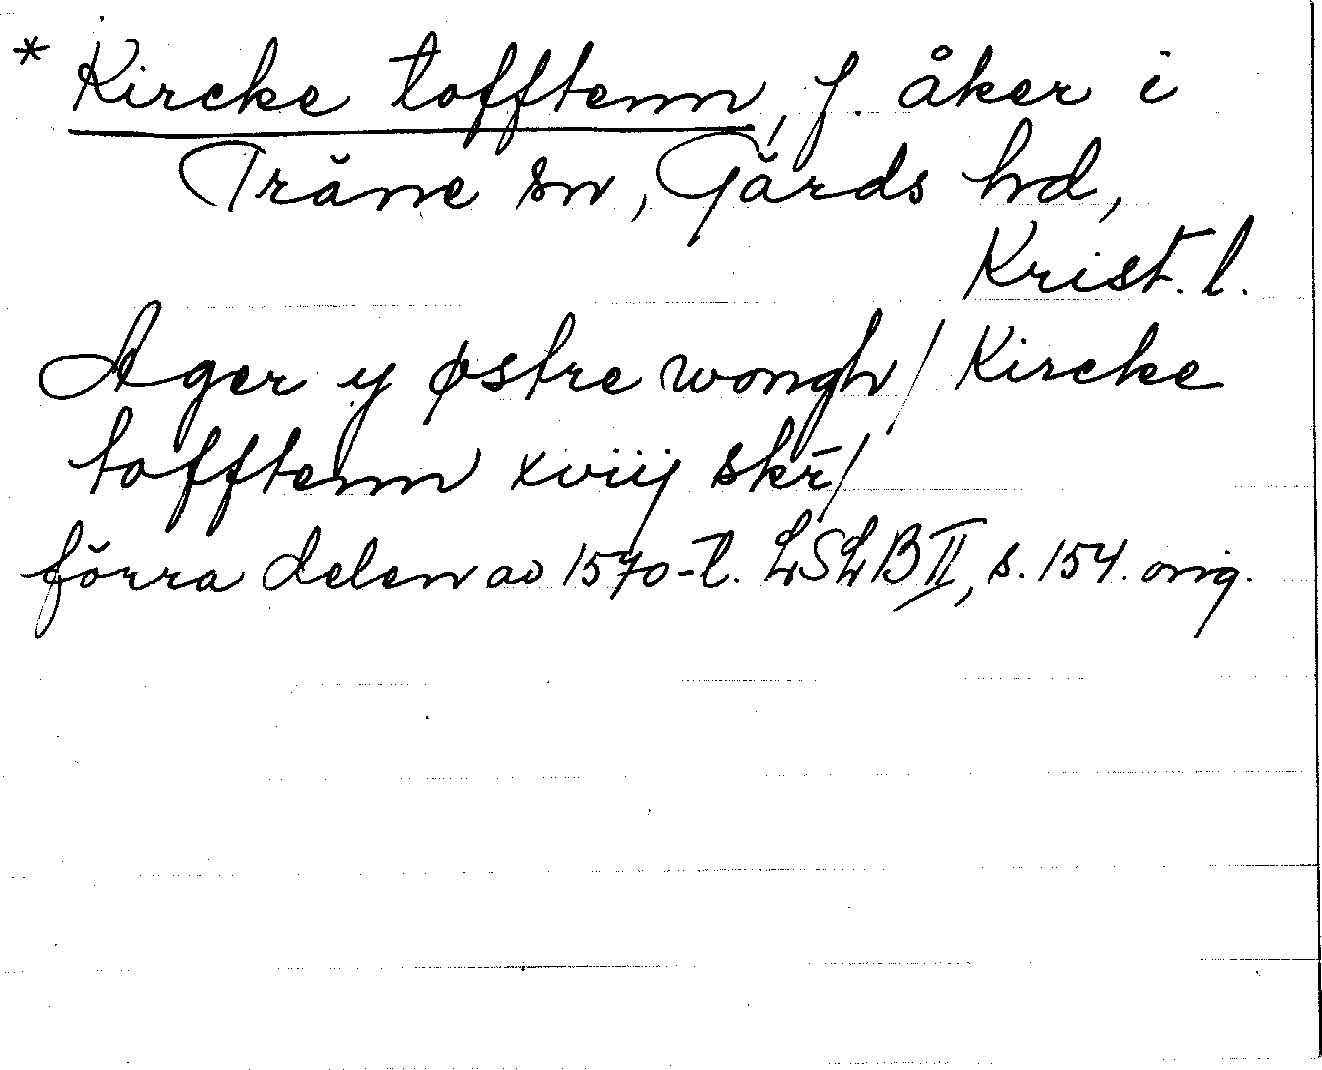 * Kircke tofftenn, f. åker i
Träne sn, Gärds hd,
Krist. l.
Ager y østre wongh / Kircke
tofftenn xviij skr̄ /
förra delen av 1570-t. LSLB II, s. 154. orig.